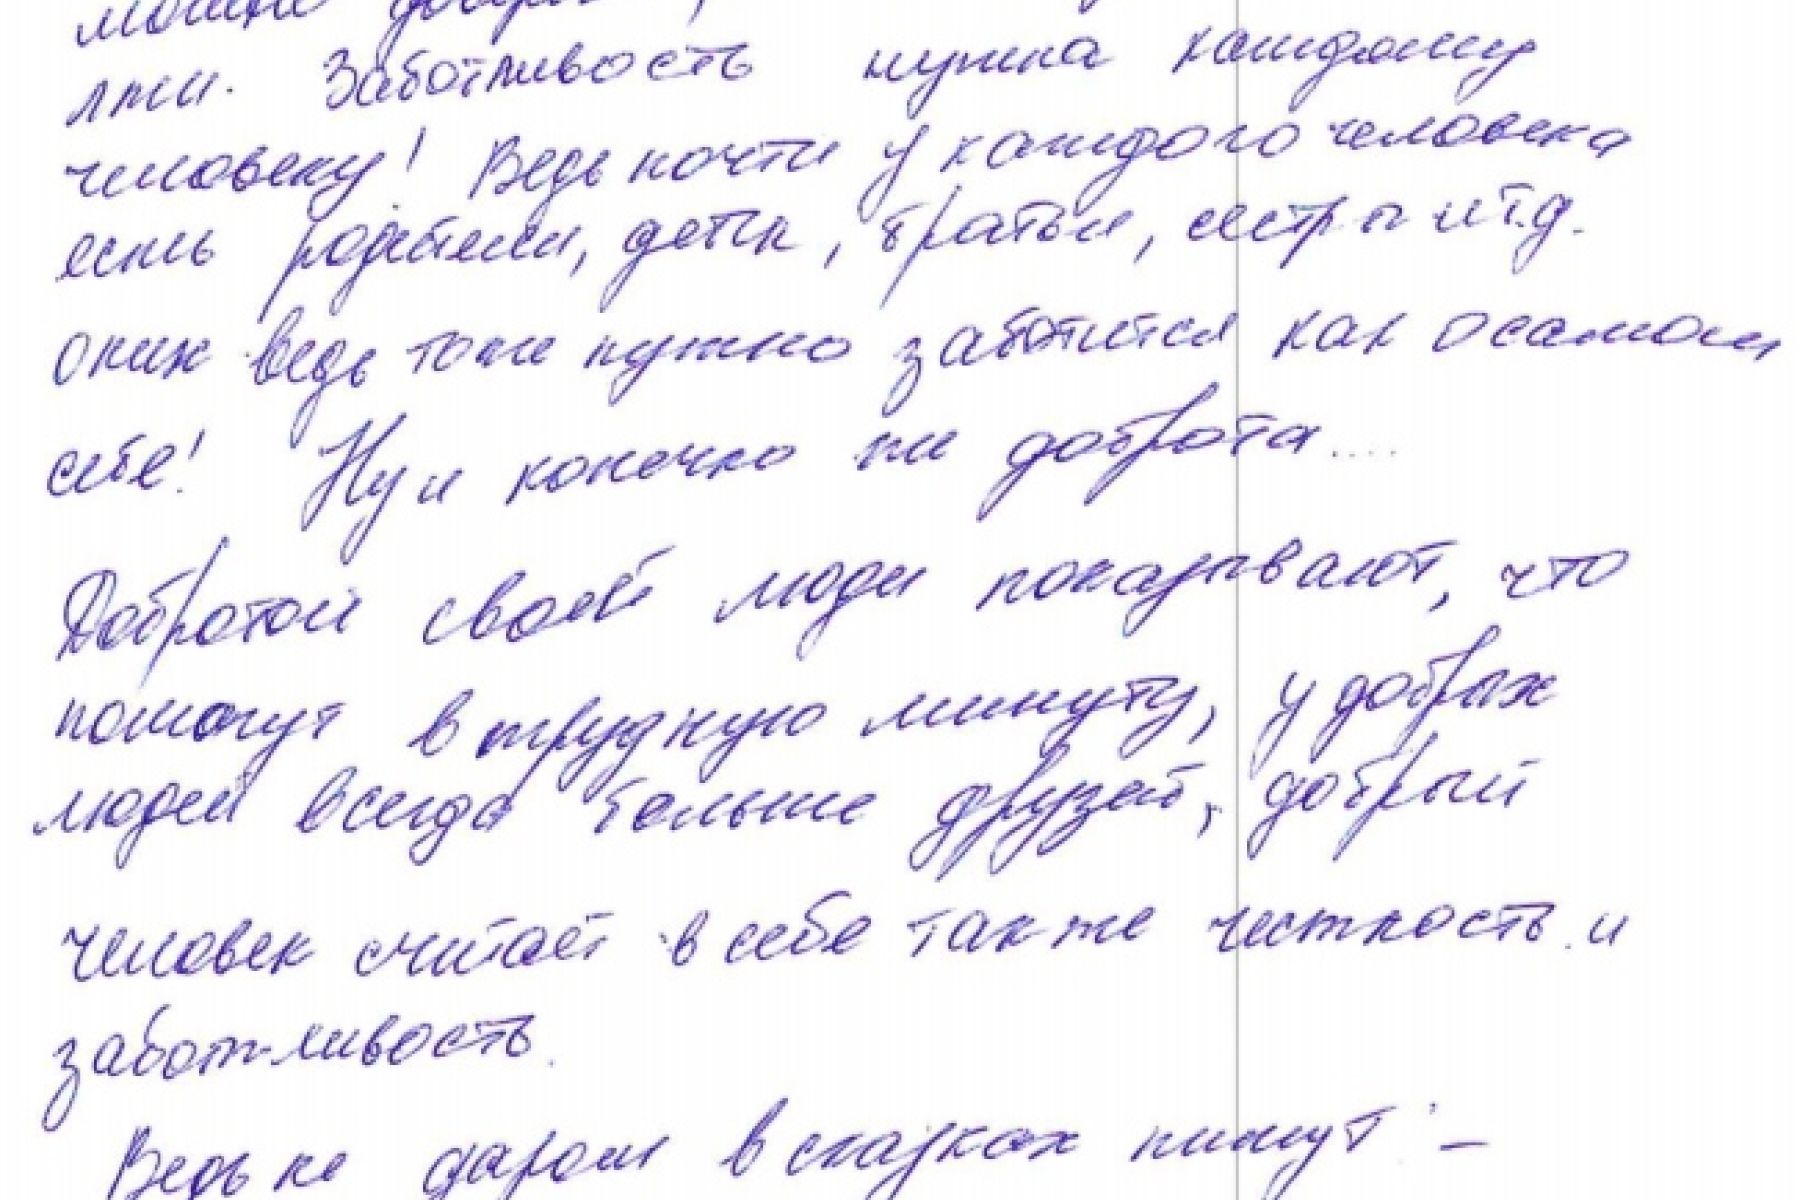 лжи. Заботливость нужна каждому
человеку! Ведь почти у каждого человека
есть родители, дети, братья, сестры и т.д.
о них ведь тоже нужно заботится как о самом
себе! Ну и конечно же доброта....
Добротой своей люди показывают, что
помогут в трудную минуту, у добрых
людей всегда больше друзей, добрый
человек считает в себе также честность и
заботливость.
Ведь не даром в сказках пишут: –